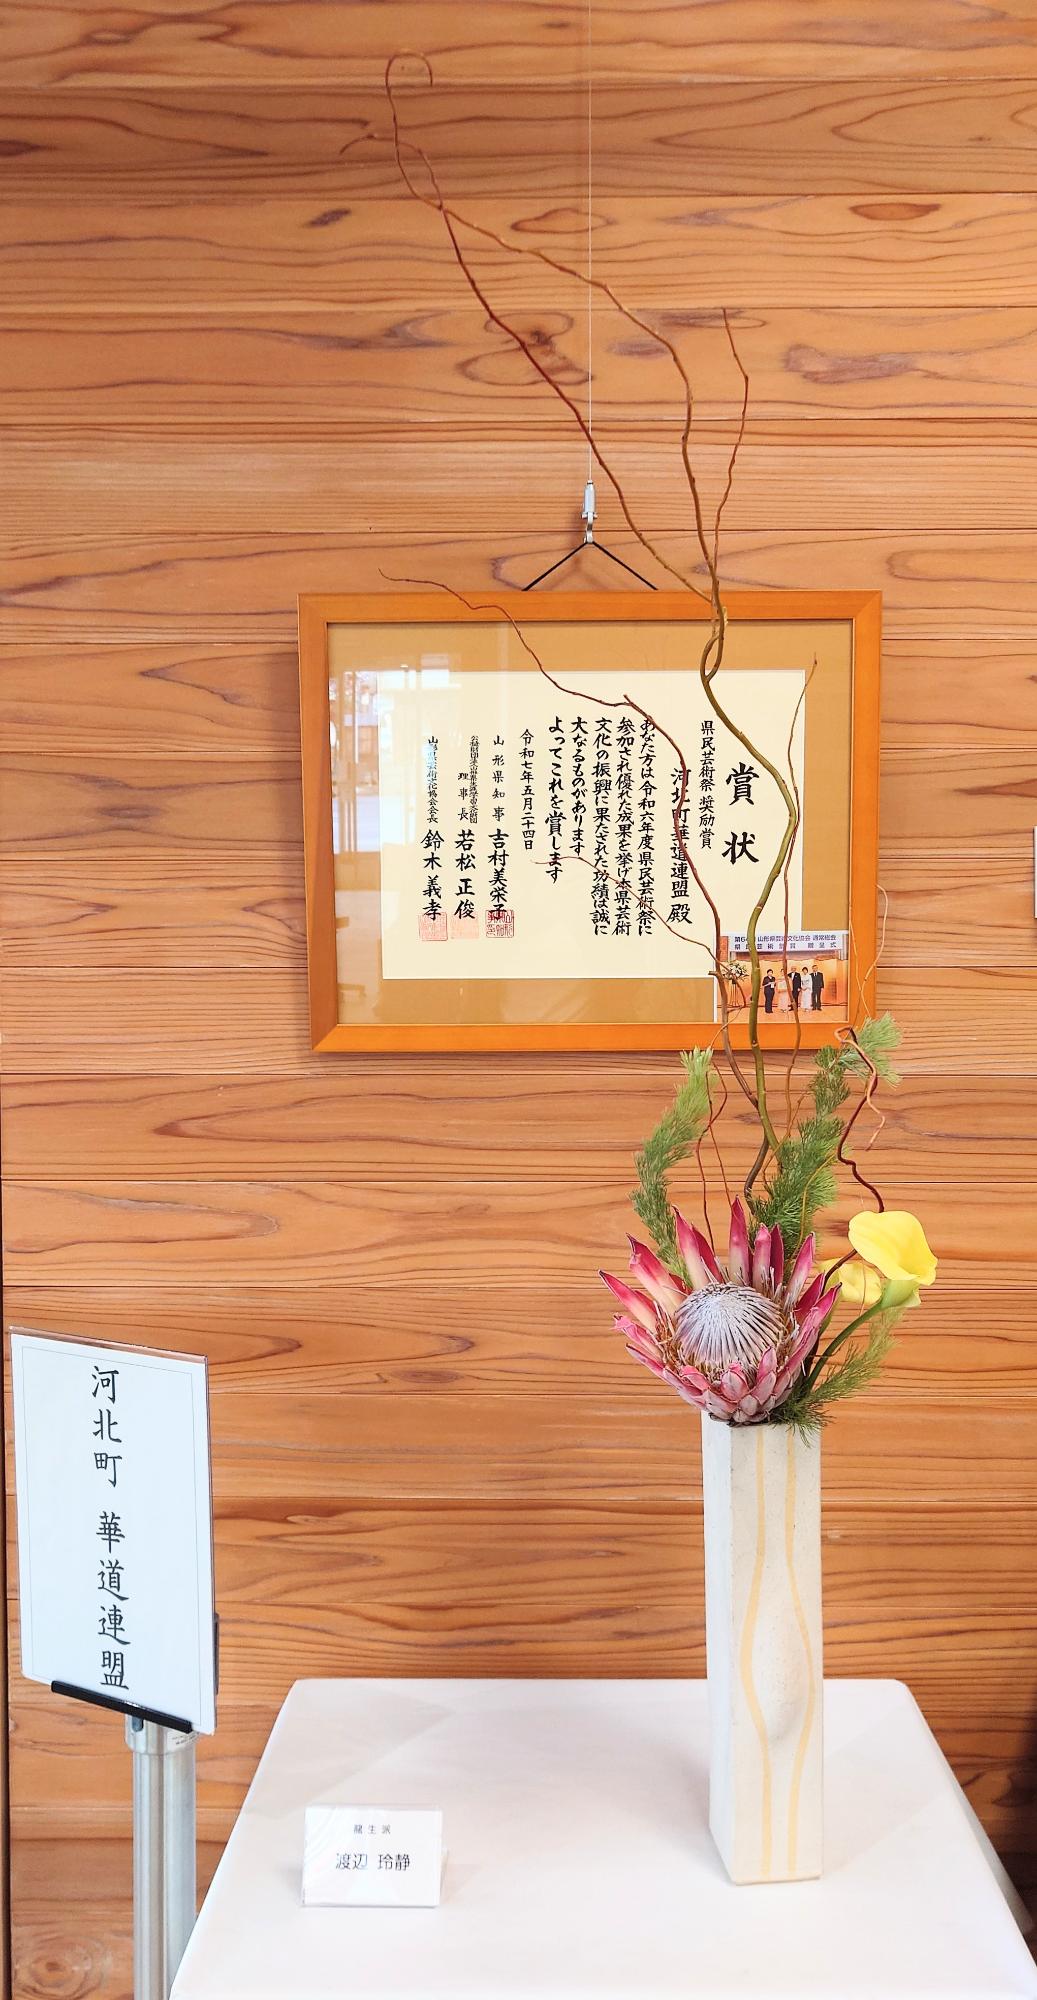 賞状
県民芸術祭 奨励賞
河北町華道連盟 殿
あなた方は令和六年度県民芸術祭に
参加され優れた成果を挙げ本県芸術
文化の振興に果たされた功績は誠に
大なるものがあります
よってこれを賞します
令和七年五月二十四日
山形県知事 吉村美栄子
理事長 若松正俊
山形県芸術文化協会会長 鈴木義孝
山形県芸術文化協会 通常総会
県民芸術祭賞 贈呈式
河北町 華道連盟
龍生派
渡辺 玲静